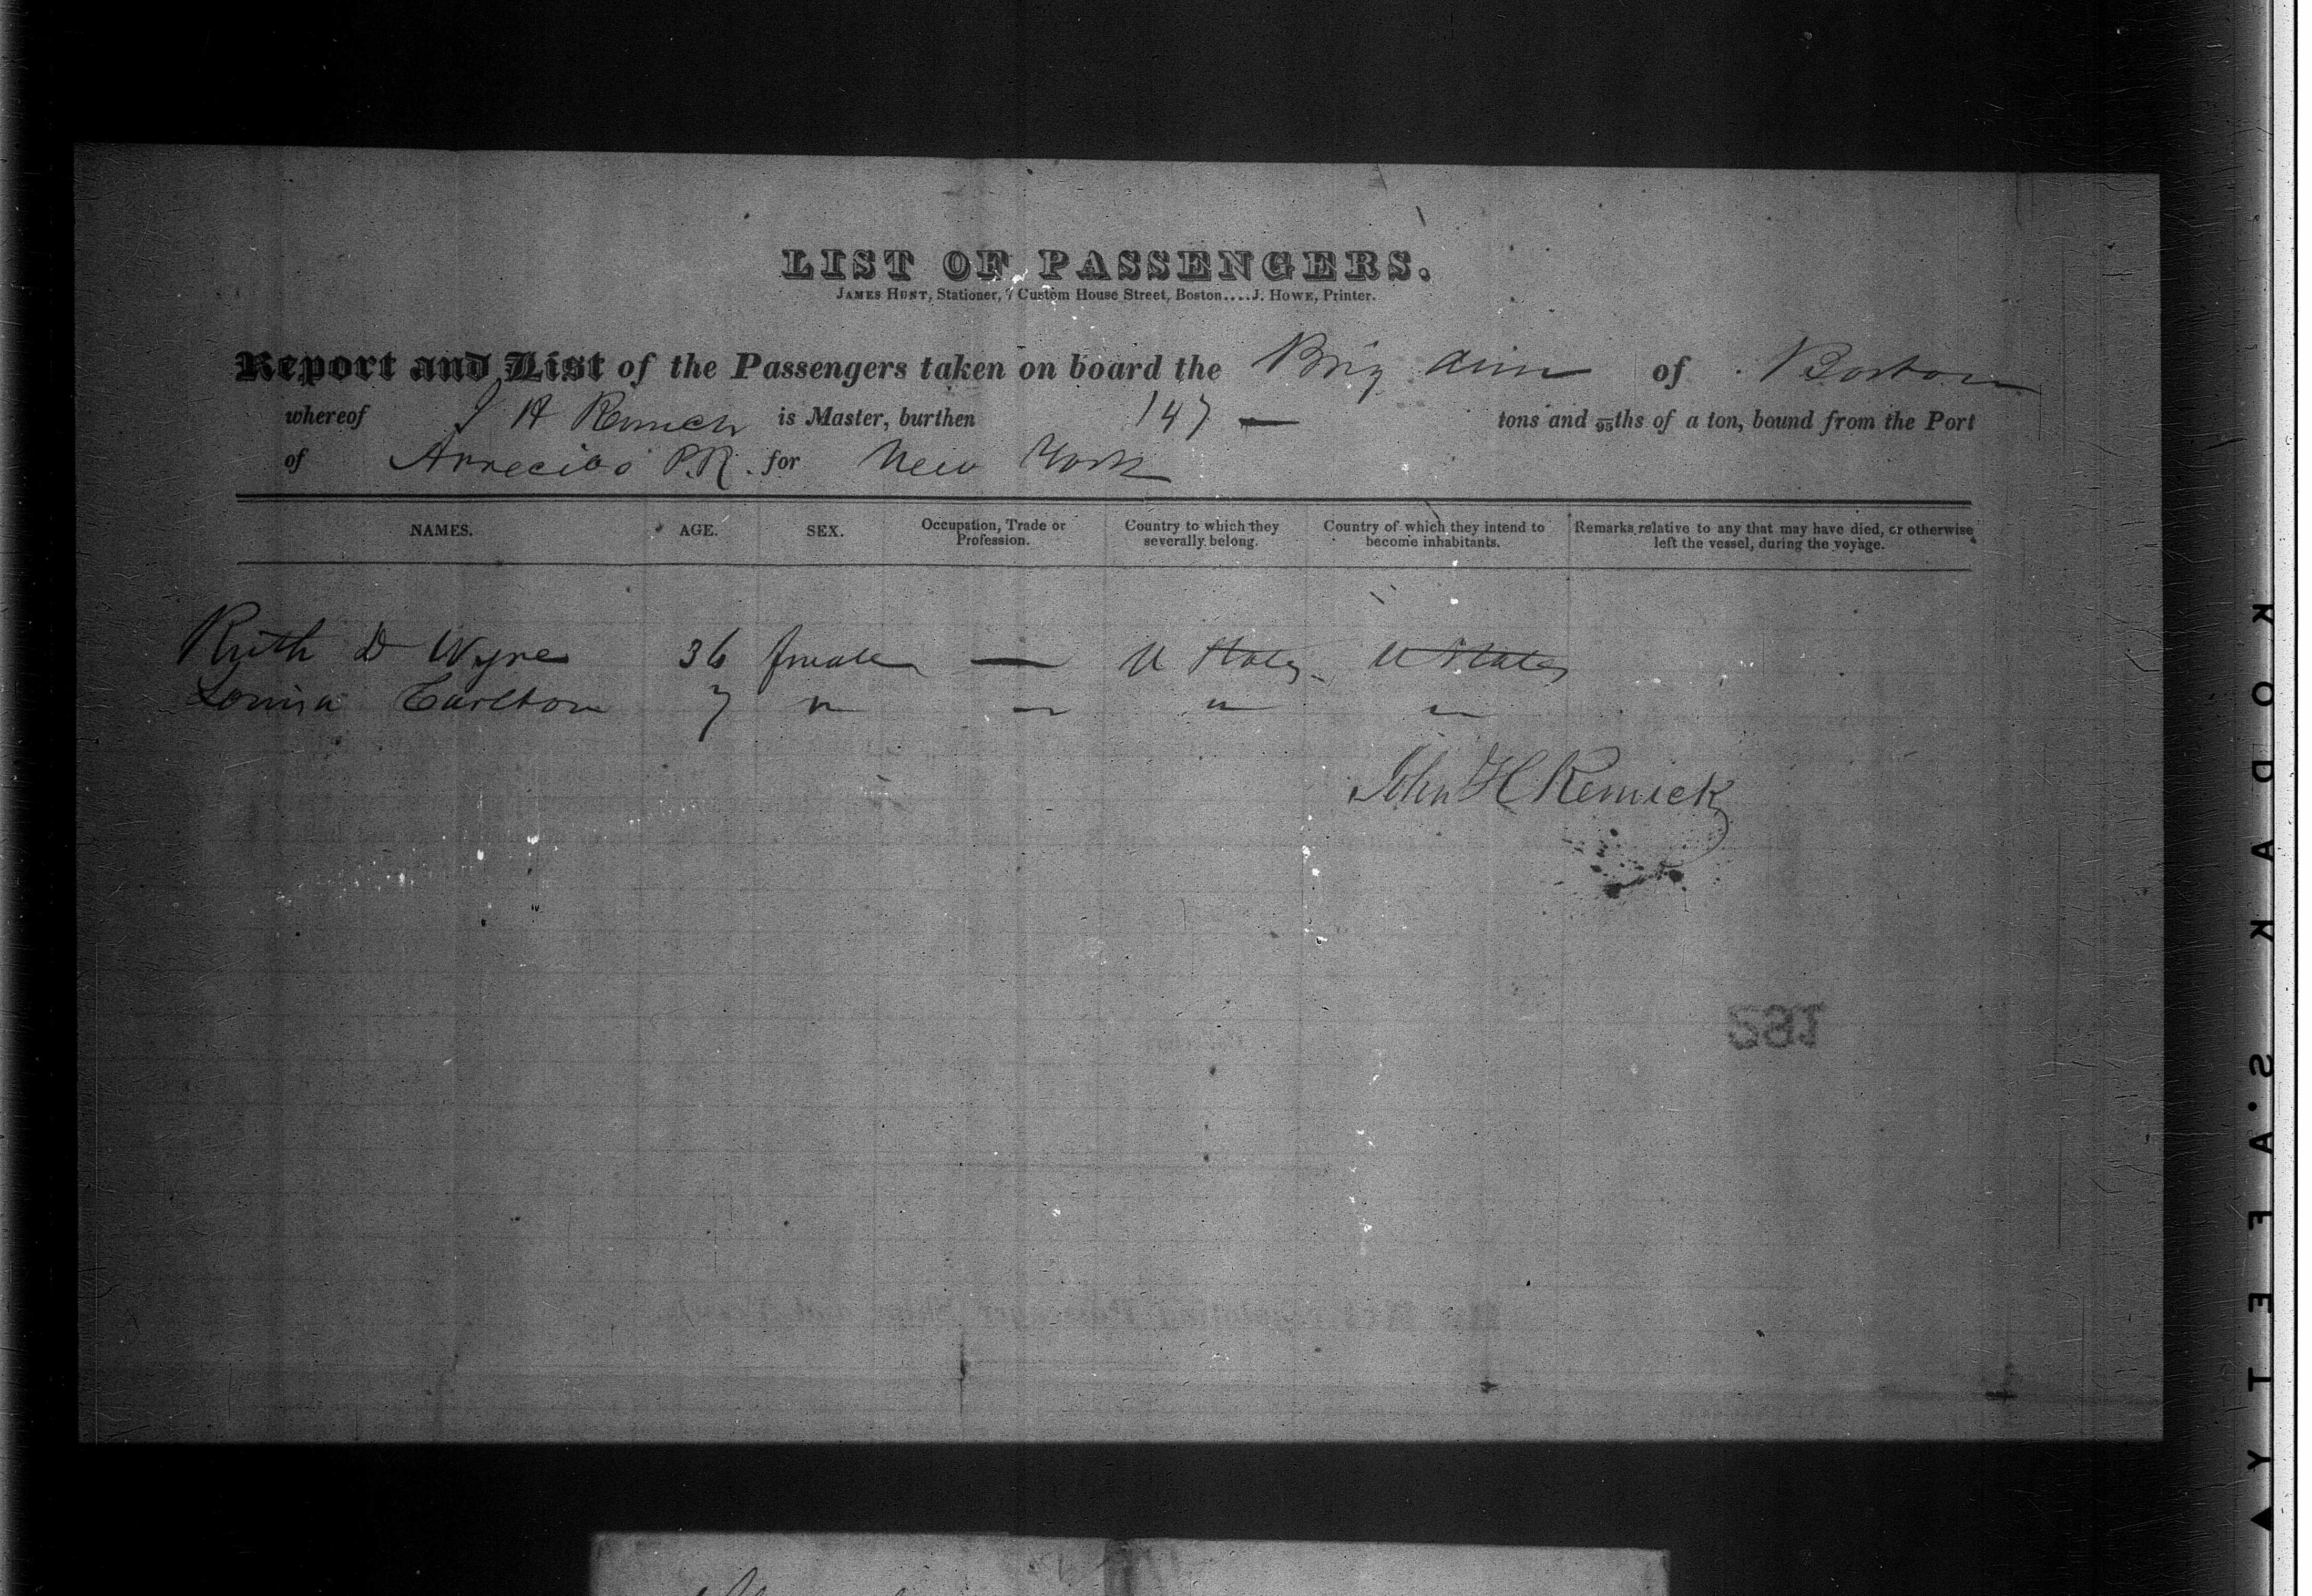 LIST OF PASSENGERS.
JAMES HUNT, Stationer, 7 Custom House Street, Boston....J. HOWE, Printer.
Report and List of the Passengers taken on board the Brig Ann of Boston
whereof J H Remick is Master, burthen 147 — tons and /95ths of a ton, bound from the Port
of Arrecibo P.R. for New York
NAMES. AGE. SEX. Occupation, Trade or Profession. Country to which they severally belong. Country of which they intend to become inhabitants. Remarks relative to any that may have died, or otherwise left the vessel, during the voyage.
Ruth D Wyre 36 female — U States U States
Louisa Carlton 7 " — " "
John H Remick
182
KODAK SAFETY